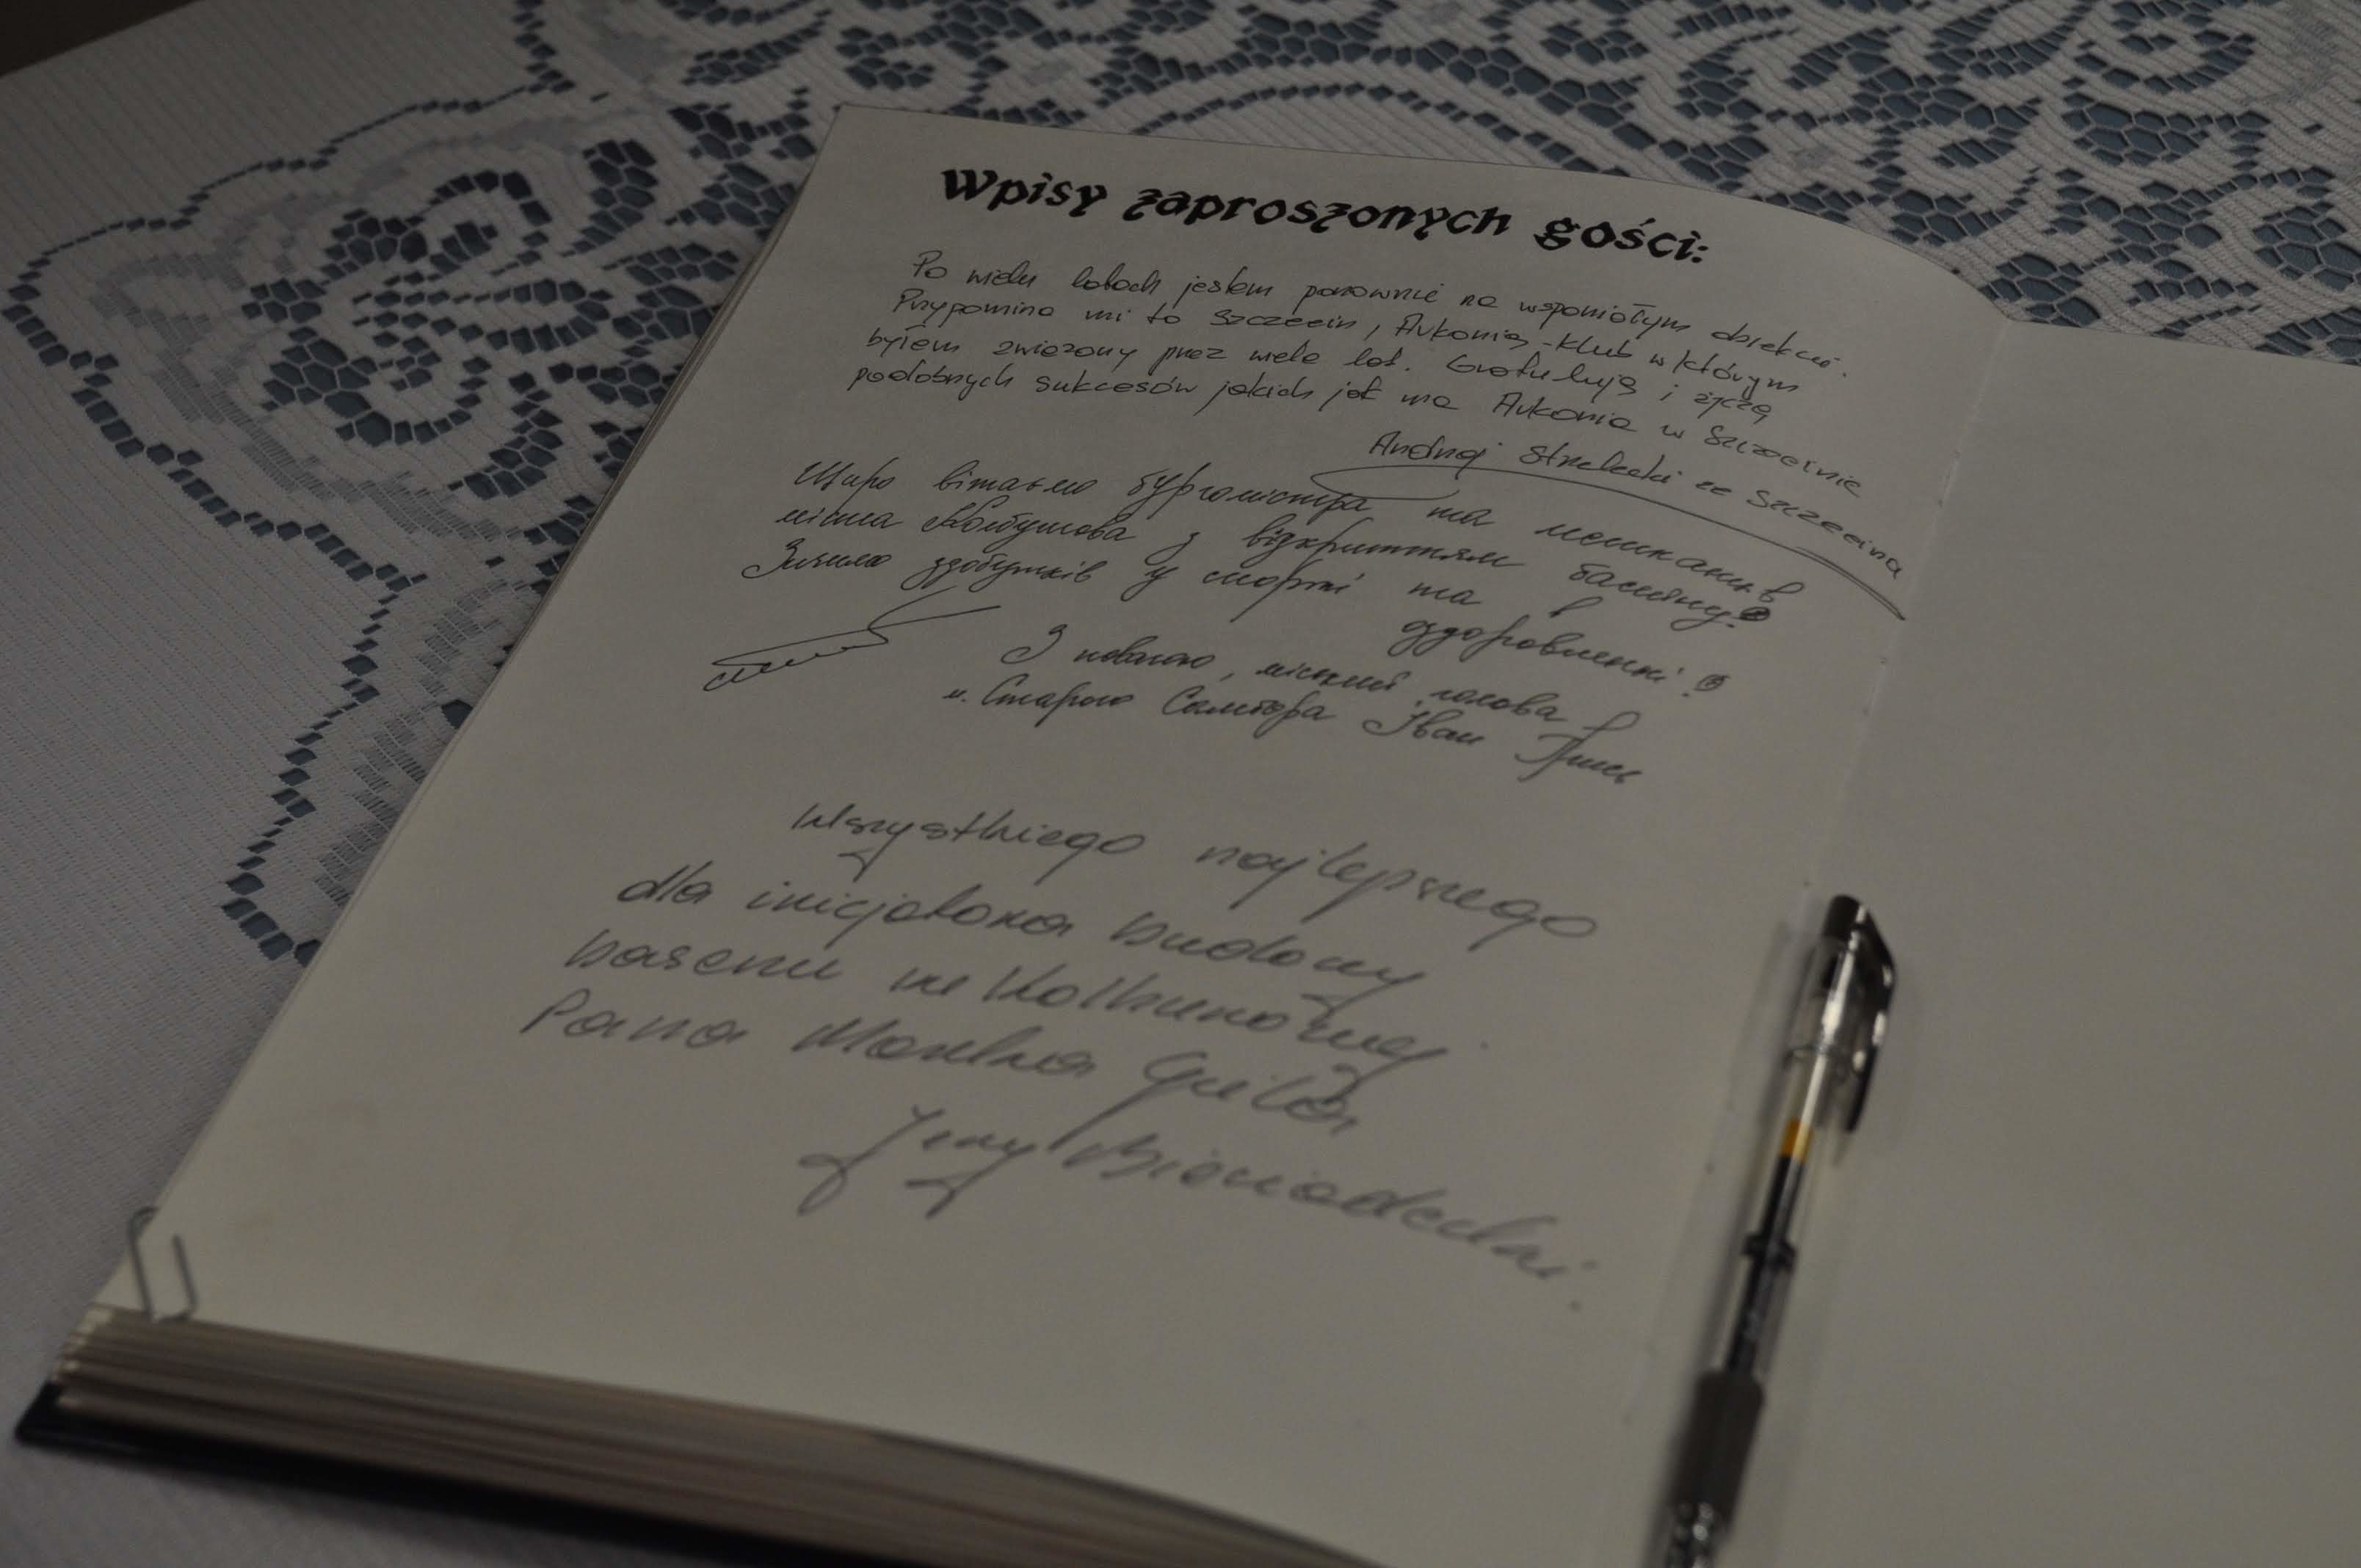 Wpisy zaproszonych gości:
Po wielu latach jestem ponownie na wspaniałym obiekcie.
Przypomina mi to Szczecin, Arkonię - Klub w którym
byłem związany przez wiele lat. Gratuluję i życzę
podobnych sukcesów jakich jak ma Arkonia w Szczecinie
Andrzej Strelecki ze Szczecina
Щиро вітаємо бургомістра та мешканців
міста Кольбушова з відкриттям басейну!
Зичимо здобутків у спорті та в
оздоровленні!
З повагою, міський голова
м. Старого Самбора Іван Грись
Wszystkiego najlepszego
dla inicjatora budowy
basenu w Kolbuszowej
Pana Marka Gila
Jerzy